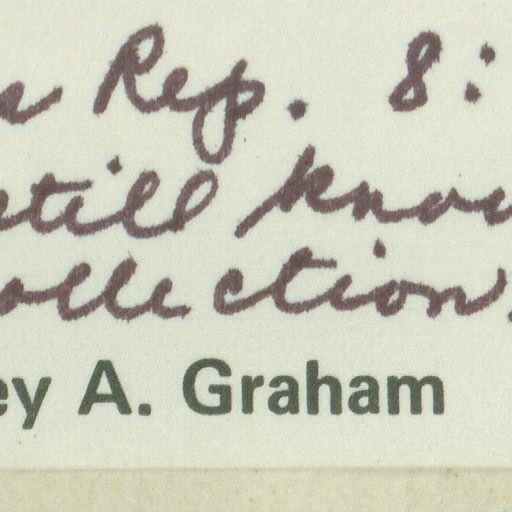 Rep. 8:
still know
collection,
ey A. Graham